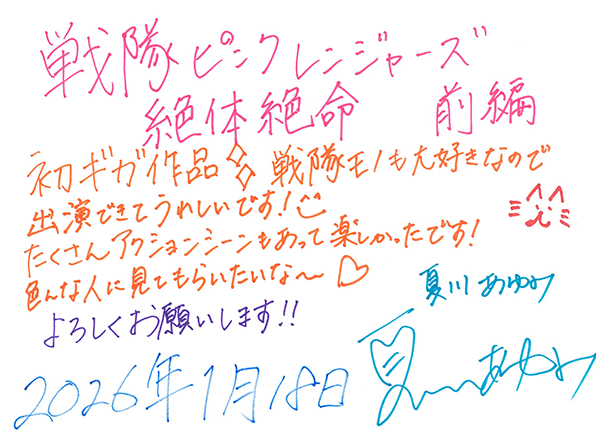 戦隊ピンクレンジャーズ
絶体絶命 前編
初ギガ作品 戦隊モノも大好きなので
出演できてうれしいです!
たくさんアクションシーンもあって楽しかったです!
色んな人に見てもらいたいな〜♡
夏川あゆみ
よろしくお願いします!!
2026年1月18日
夏川あゆみ